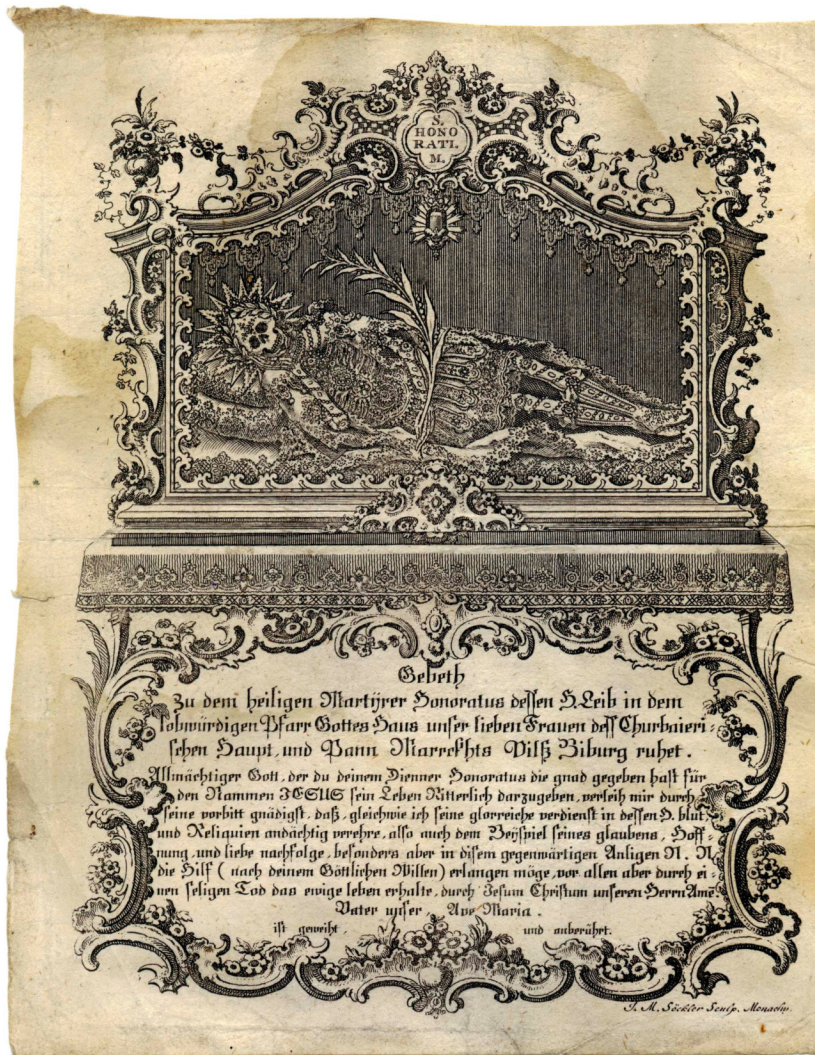 S.
HONO
RATI.
M.
Gebeth
Zu dem heiligen Martÿrer Honoratus dessen H. Leib in dem
lobwürdigen Pfarr Gottes Haus unser lieben Frauen dess Churbaieri-
schen Haupt, und Pann Marckhts Vilß Biburg ruhet.
Allmächtiger Gott, der du deinem Dienner Honoratus die gnad gegeben hast für
den Nammen JESUS sein Leben Ritterlich darzugeben, verleih mir durch
seine vorbitt gnädigst, daß, gleichwie ich seine glorreiche verdienst in dessen H. blut,
und Reliquien andächtig verehre, also auch dem Beÿspiel seines glaubens, Hoff-
nung, und liebe nachfolge, besonders aber in disem gegenwärtigen Anligen N. N.
die Hilf (nach deinem Göttlichen Willen) erlangen möge, vor allen aber durch ei-
nen seligen Tod das ewige leben erhalte, durch Jesum Christum unseren Herrn Amē.
Vater unser, Ave Maria.
ist geweiht, und anberührt.
J. M. Söckler Sculp. Monachii.